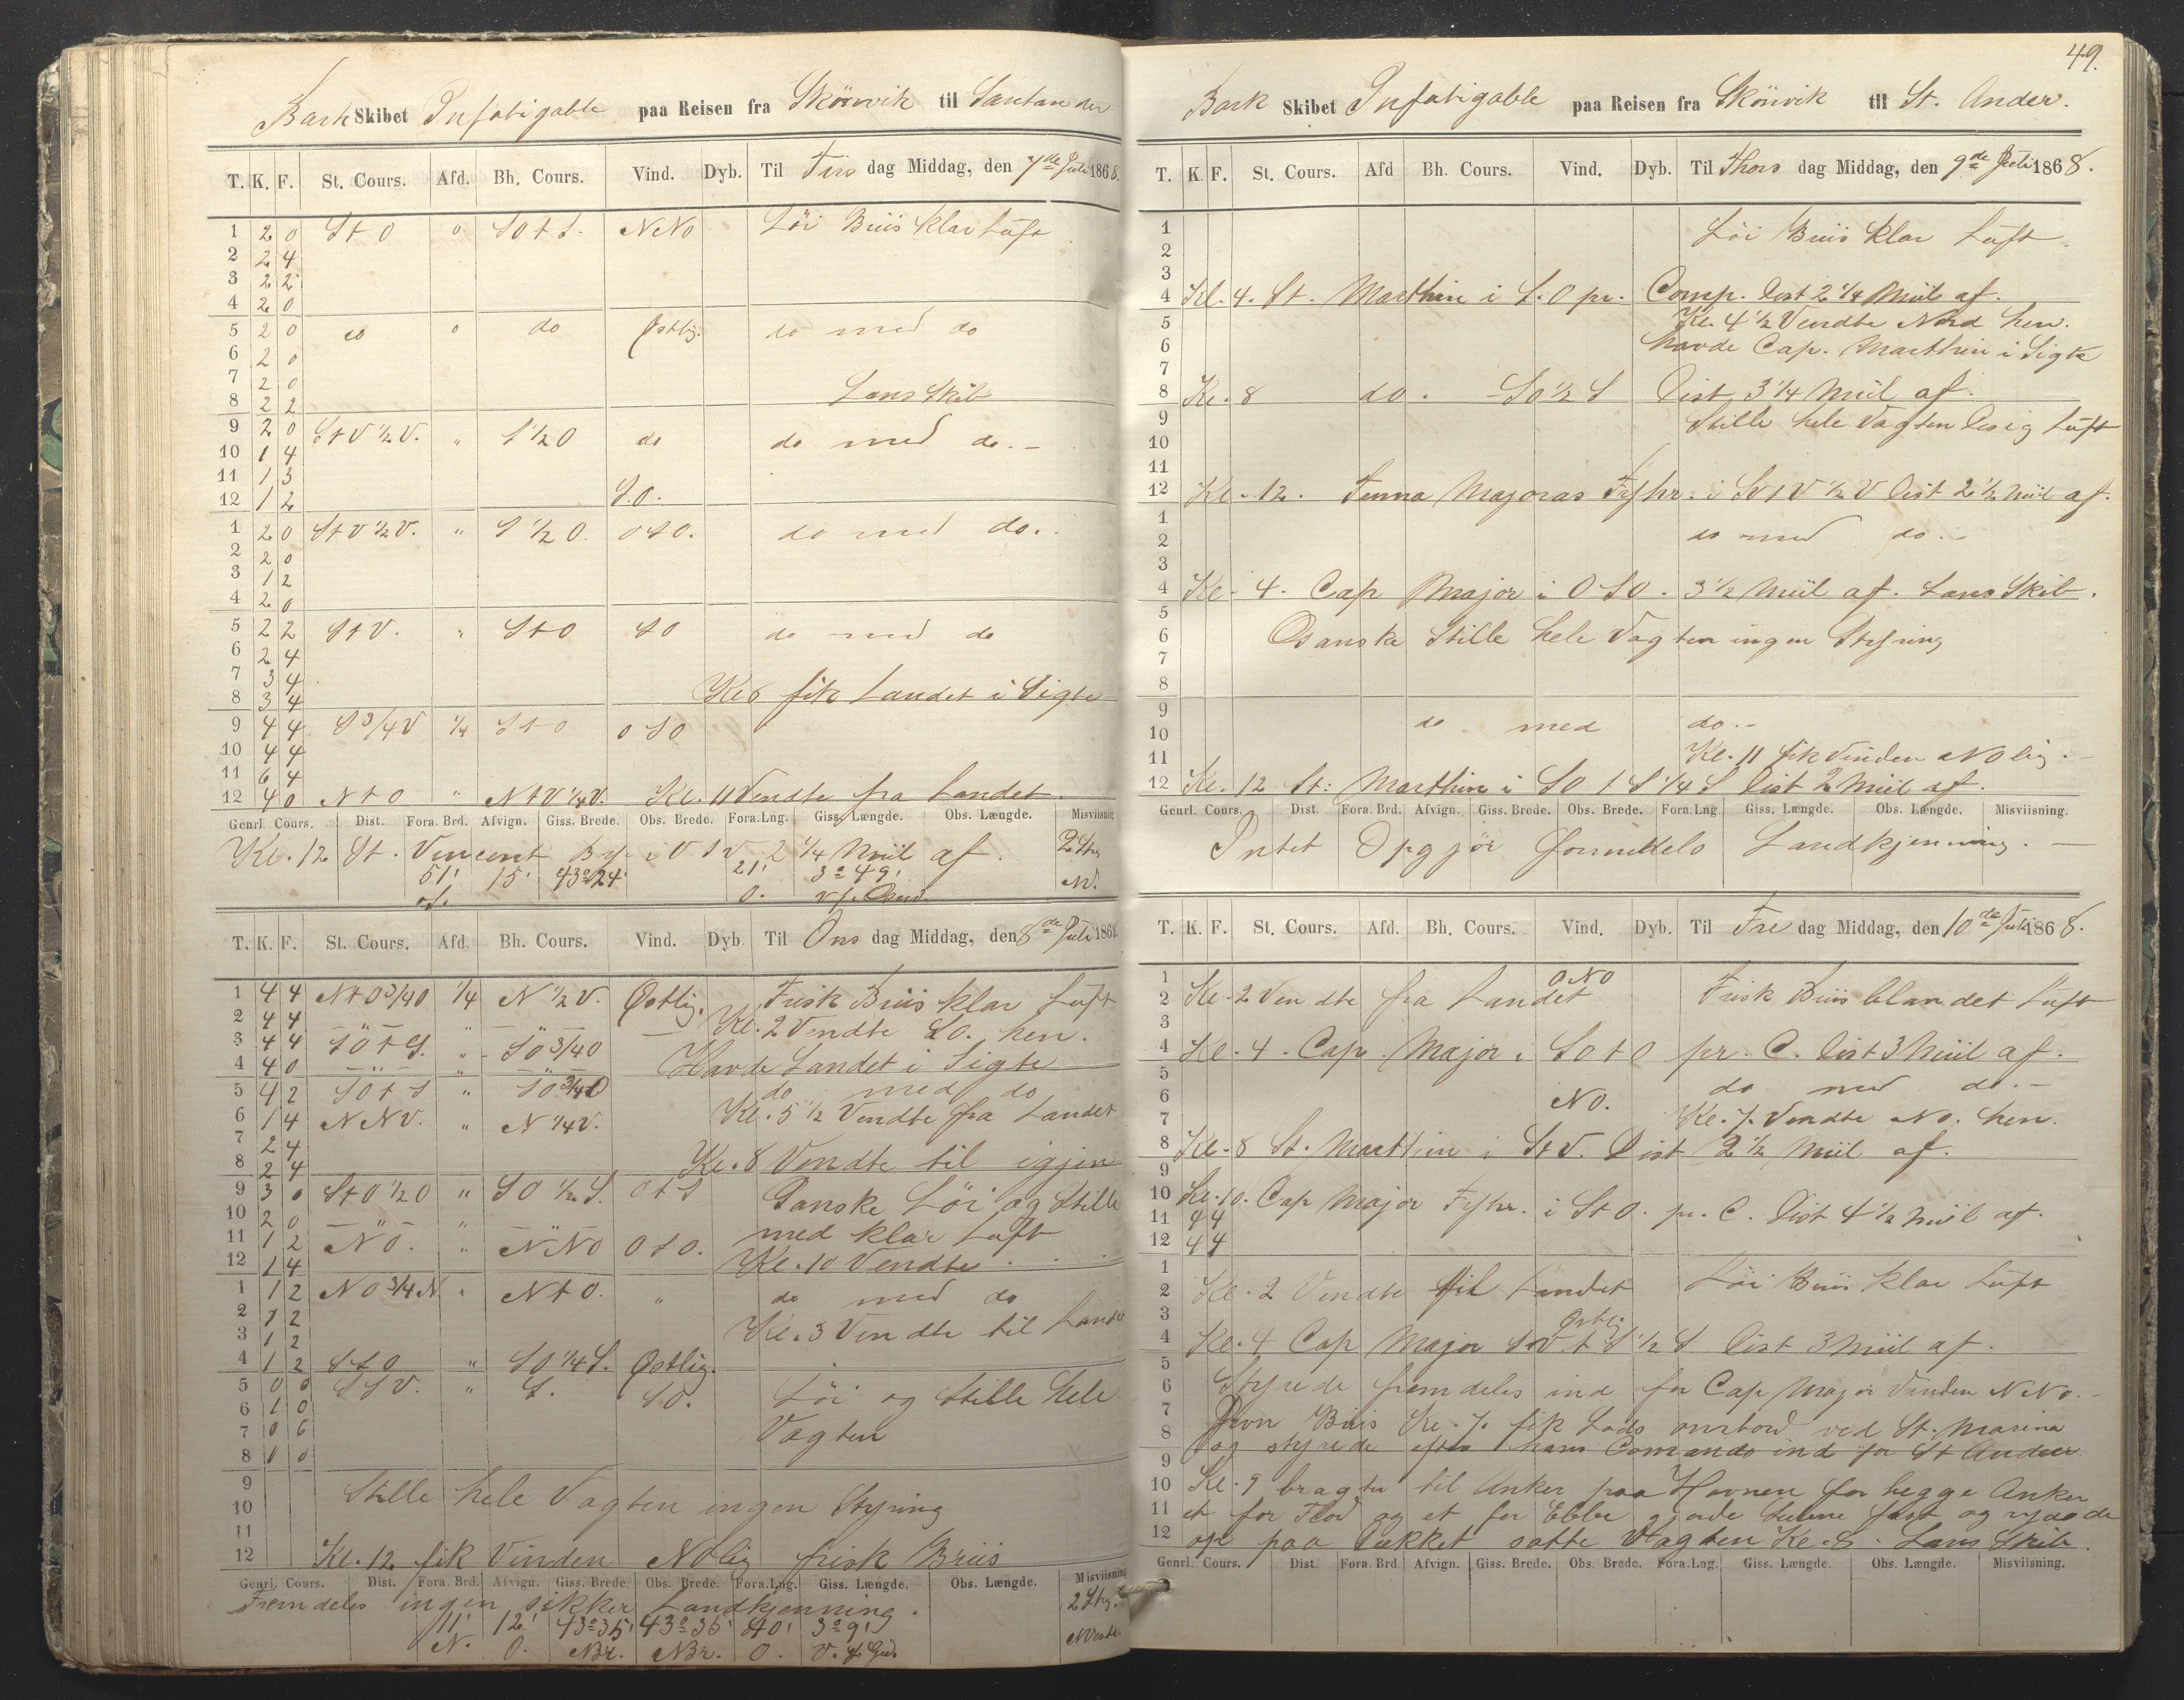 Bark Skibet Infatigable paa Reisen fra Skönvik til Santander
T. K. F. St. Cours. Afd. Bh. Cours. Vind. Dyb. Til Tirs dag Middag, den 7de Juli 1868.
1 2 0 St O " SO t S. NNO Löi Briis klar Luft
2 2 4
3 2 2
4 2 0
5 2 0 do " do Östlig. do med do
6 2 0
7 2 0
8 2 2 Lens Skib
9 2 0 St V ½ V. " S ½ O do do med do.-
10 1 4
11 1 3
12 1 2 S.O.
1 2 0 St V ½ V. " S ½ O. OSO. do med do..
2 2 0
3 1 2
4 2 0
5 2 2 St V. " St O SO do med do
6 2 4
7 3 4
8 3 4 Kl 8 fik Landet i Sigte
9 4 4 S ¾ V ¼ St O OSO
10 4 4
11 6 4
12 4 0 Nt O " Nt V ¼ V. Kl. 11 Vendte fra Landet.
Genrl. Cours. Dist. Fora. Brd. Afvign. Giss. Brede. Obs. Brede. Fora. Lng. Giss. Længde. Obs. Længde. Misviisning
Kl. 12 St. Vincent By i V S V 2 ¼ Miil af. 2 Str
51' 15' 43°24' 21' 3°49' NV.
S. O.
T. K. F. St. Cours. Afd. Bh. Cours. Vind. Dyb. Til Ons dag Middag, den 8de Juli 1868.
1 4 4 Nt O ¾ O ¼ N ½ V. Östlig. Frisk Briis klar Luft
2 4 4 Kl. 2 Vendte SO. hen.
3 4 4 SO t S. " SO ¾ O
4 4 0 Havde Landet i Sigte
5 4 2 SO t S " SO ¾ O do med do
6 1 4 NNV. " N ¼ V. Kl. 5 ½ Vendte fra Landet
7 2 4
8 2 4 Kl. 8 Vendte til igjen
9 3 0 St O ½ O " SO ½ S. O t S Ganske Löi og Stille
10 2 0 med klar Luft
11 1 2 NO. " NNO OSO.
12 1 4 Kl. 10 Vendte . . .
1 1 2 NO ¾ N. " Nt O. " do med do
2 1 2
3 1 2 Kl. 3 Vendte til Landet
4 1 2 St O " SO ¼ S. Östlig.
5 0 0 SSV. " S. SO. Löi og Stille hele
6 1 0
7 0 6 Vagten
8 0 0
9
10 Stille hele Vagten ingen Styring
11
12 Kl. 12 fik Vinden NOlig frisk Briis
Genrl. Cours. Dist. Fora. Brd. Afvign. Giss. Brede. Obs. Brede. Fora. Lng. Giss. Længde. Obs. Længde. Misviisning
Fremdeles ingen sikker Landkjenning. 2 Str.
11' 12' 43°35' 43°35' 40' 3°9'
N. O. NBr. NBr. O. V. f. Grd.
49.
Bark Skibet Infatigable paa Reisen fra Skönvik til St. Ander.
T. K. F. St. Cours. Afd Bh. Cours. Vind. Dyb. Til Thors dag Middag, den 9de Juli 1868.
1 Löi Briis Klar Luft.
2
3
4 Kl. 4. St. Marthin i S.O pr. Comp. Dist 2 ¼ Miil af.
5 Kl. 4 ½ Vendte Nord hen.
6 havde Cap. Marthin i Sigte
7
8 Kl. 8 do. SO ½ S Dist 3 ¼ Miil af.
9 Stille hele Vagten Disig Luft
10
11
12 Kl. 12. Fenna Majoras Fyhr. i SV t V ½ V Dist 2 ½ Miil af.
1
2 do med do.-
3
4 Kl. 4. Cap Major i OSO. 3 ½ Miil af. Lens Skib.
5
6 Ganske Stille hele Vagten ingen Styring
7
8
9
10 do med do.-
11 Kl. 11 fik Vinden NOlig.-
12 Kl. 12 St: Marthin i SO t S ¼ S Dist 2 Miil af.
Genrl. Cours. Dist. Fora. Brd. Afvign. Giss. Brede. Obs. Brede. Fora. Lng. Giss. Længde. Obs. Længde. Misviisning.
Intet Opgjör Formedels Landkjenning. -
T. K. F. St. Cours. Afd. Bh. Cours. Vind. Dyb. Til Fre dag Middag, den 10de Juli 1868.
1 ONO
2 Kl. 2 Vendte fra Landet Frisk Briis blandet Luft
3
4 Kl. 4. Cap. Major i SO t O pr. C. Dist 3 Miil af.
5 do med do.-
6 NO.
7 Kl. 7. Vendte NO. hen.
8 Kl. 8 St. Marthin i St V. Dist 2 ½ Miil af.
9
10 Kl. 10. Cap Major Fyhr. i St O. pr. C. Dist 4 ½ Miil af.
11 4 4
12 4 4
1
2 Kl. 2 Vendte til Landet Löi Briis klar Luft
3 Östlig
4 Kl. 4 Cap Major SV t S ½ S Dist 3 Miil af.
5
6 Styrede fremdeles ind for Cap Major Vinden NNO.-
7 Jevn Briis Kl. 7. fik Lods ombord ved St. Marina
8 og styrede efter hans Comando ind for St Ander
9
10 Kl. 9 bragte til Anker paa Havnen for begge Anker
11 et for Flod og et for Ebbe gjorde Seilene fast og rydede
12 op paa Dækket satte Vagten Kl. 8. Lens Skib.
Genrl. Cours. Dist. Fora. Brd Afvign. Giss. Brede. Obs. Brede. Fora. Lng. Giss. Længde. Obs. Længde. Misviisning.